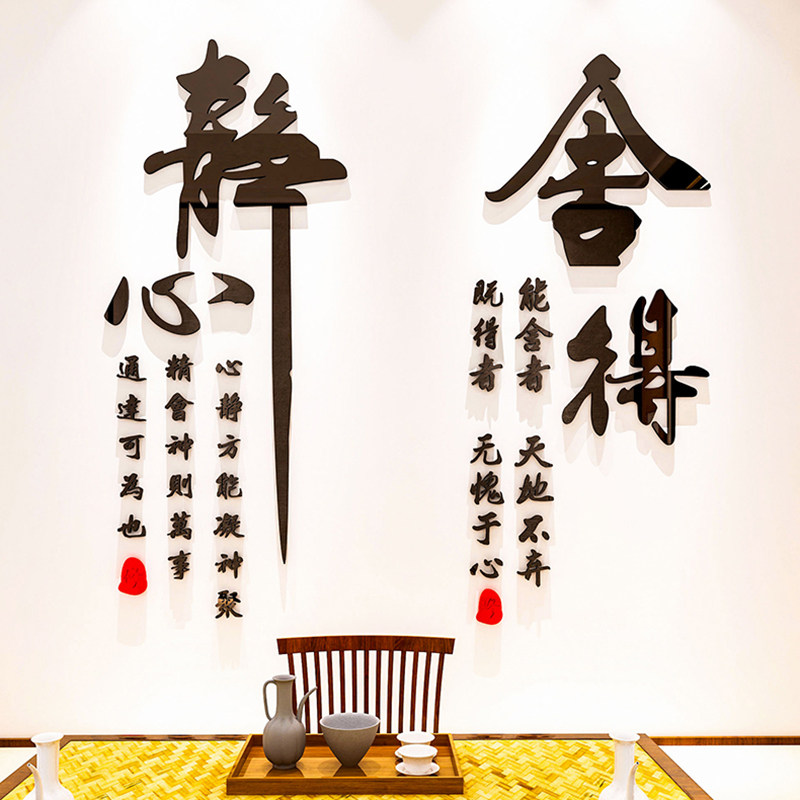 舍得
能舍者 天地不弃
既得者 无愧于心
静心
心静方能凝神聚
精會神則萬事
通達可為也